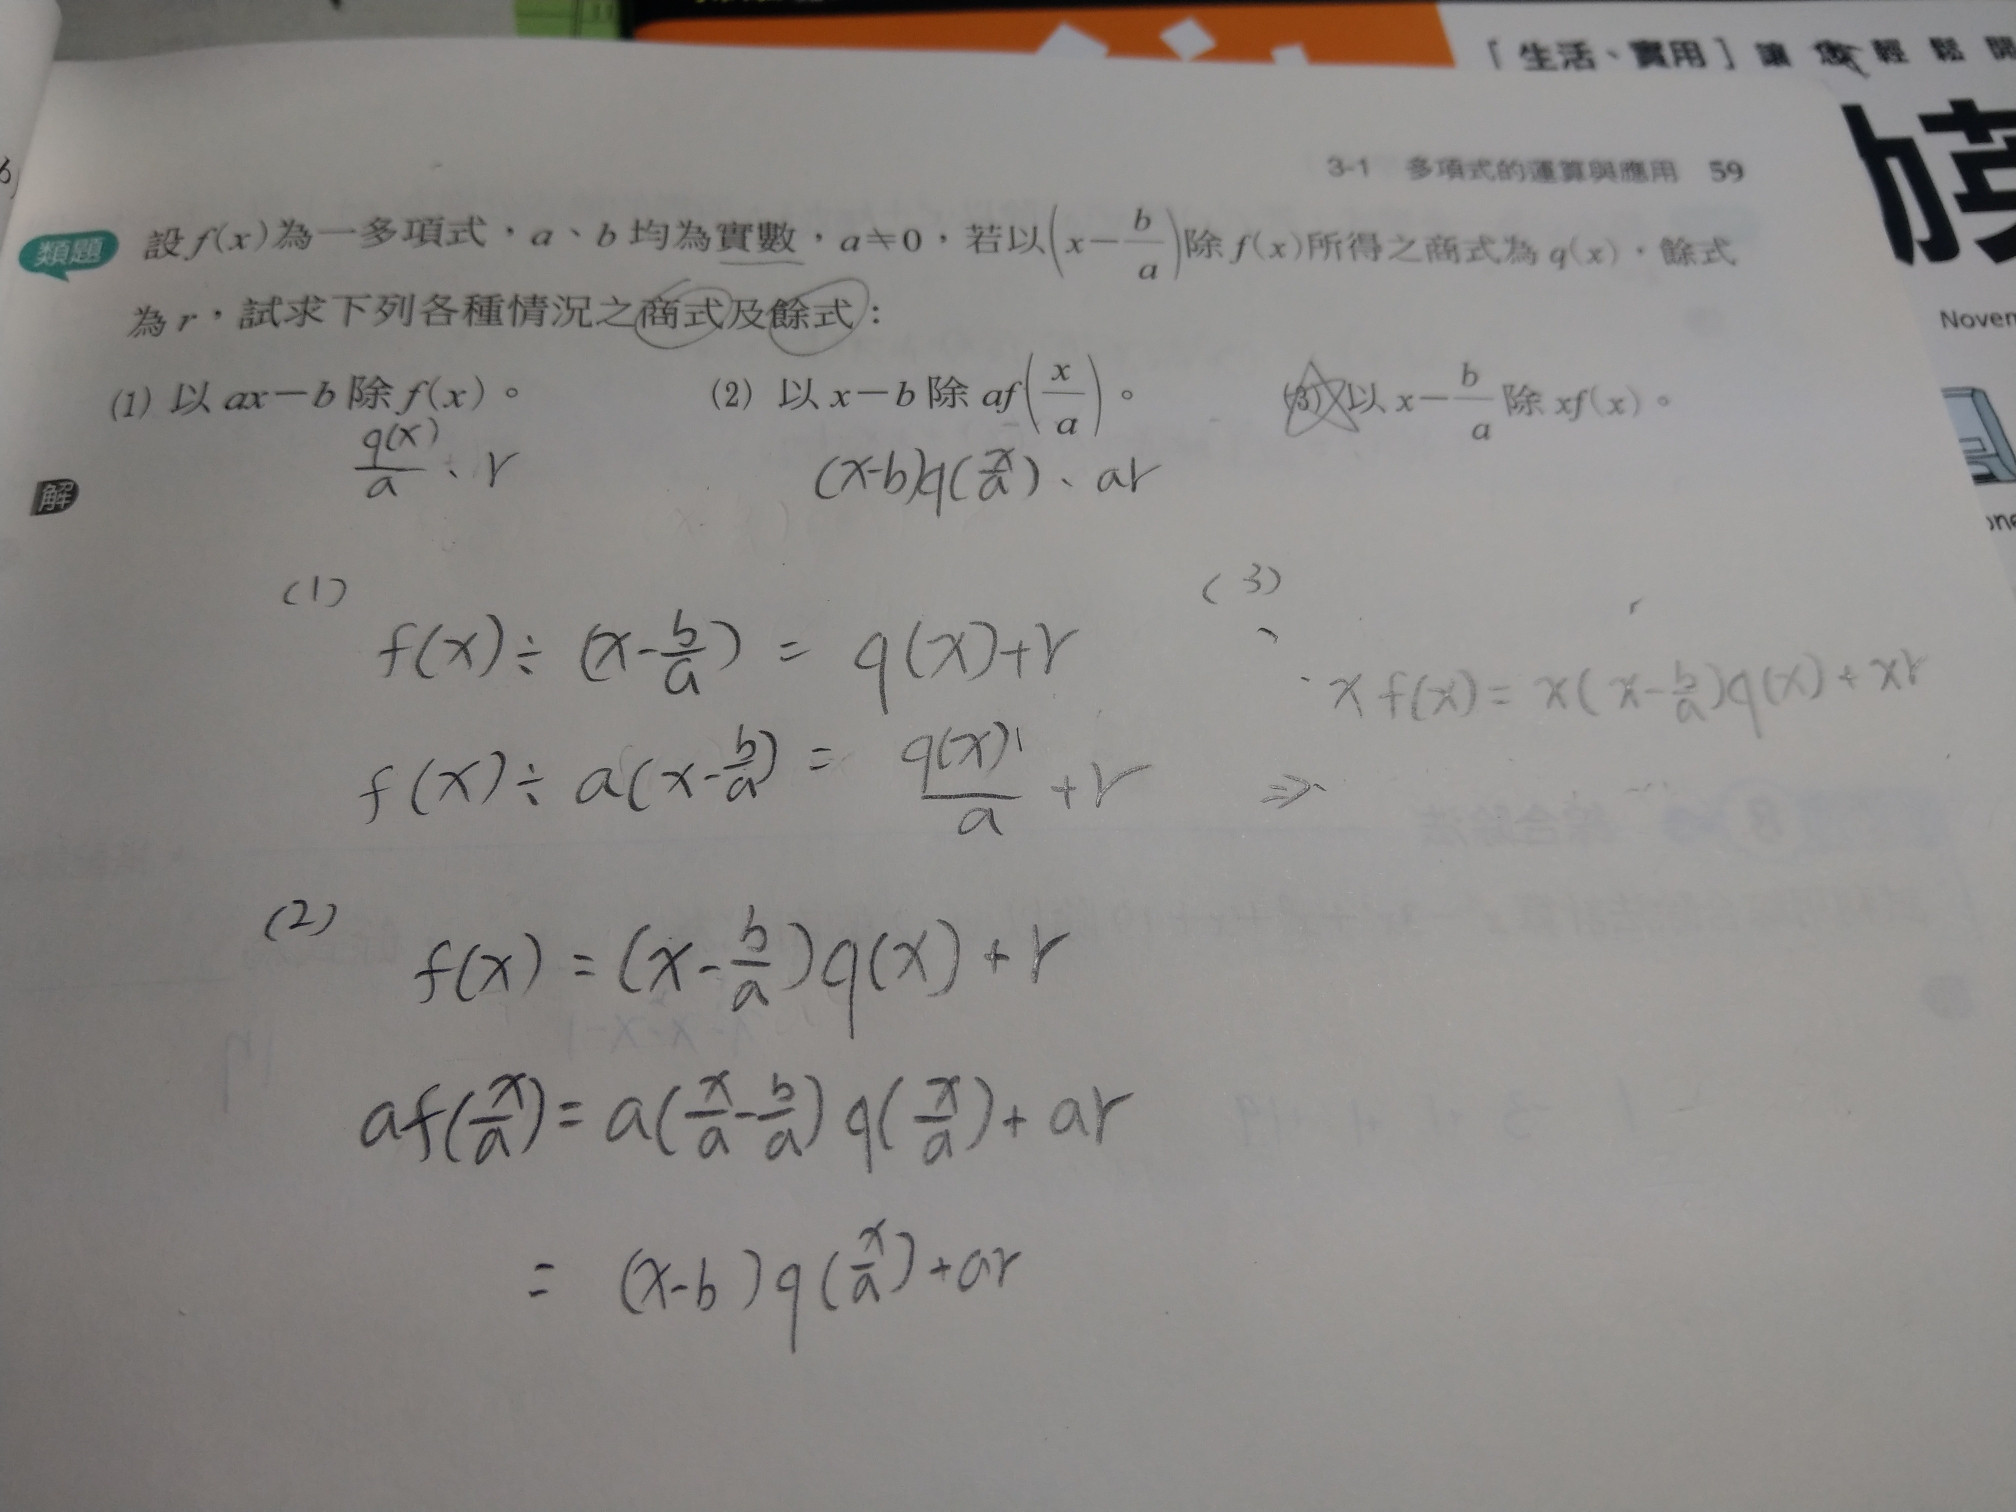 「生活、實用」讓您輕鬆
Novem
3-1 多項式的運算與應用 59
類題 設f(x)為一多項式，a、b均為實數，a≠0，若以(x-b/a)除f(x)所得之商式為q(x)，餘式
為r，試求下列各種情況之商式及餘式：
(1) 以ax-b除f(x)。 (2) 以x-b除af(x/a)。 (3) 以x-b/a除xf(x)。
q(x)/a、r (x-b)q(x/a)、ar
解
(1)
f(x)÷(x-b/a)= q(x)+r
f(x)÷a(x-b/a)= q(x)/a +r
(2)
f(x)=(x-b/a)q(x)+r
af(x/a)=a(x/a-b/a)q(x/a)+ar
= (x-b)q(x/a)+ar
(3)
xf(x)=x(x-b/a)q(x)+xr
⇒